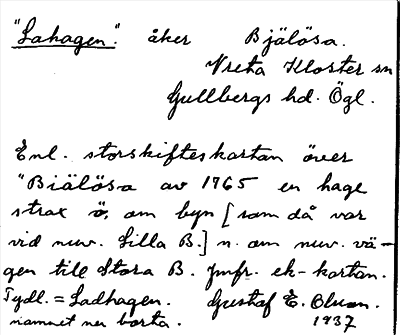 "Lahagen". åker Bjälösa.
Vreta Kloster sn
Gullbergs hd. Ögl.
Enl. storskifteskartan över
"Biälösa av 1765 en hage
strax ö. om byn [som då var
vid nuv. Lilla B.] n. om nuv. vä-
gen till Stora B. Jmfr. ek-kartan.
Tydl. = Ladhagen. Gustaf E. Olsson.
namnet nu borta. 1937